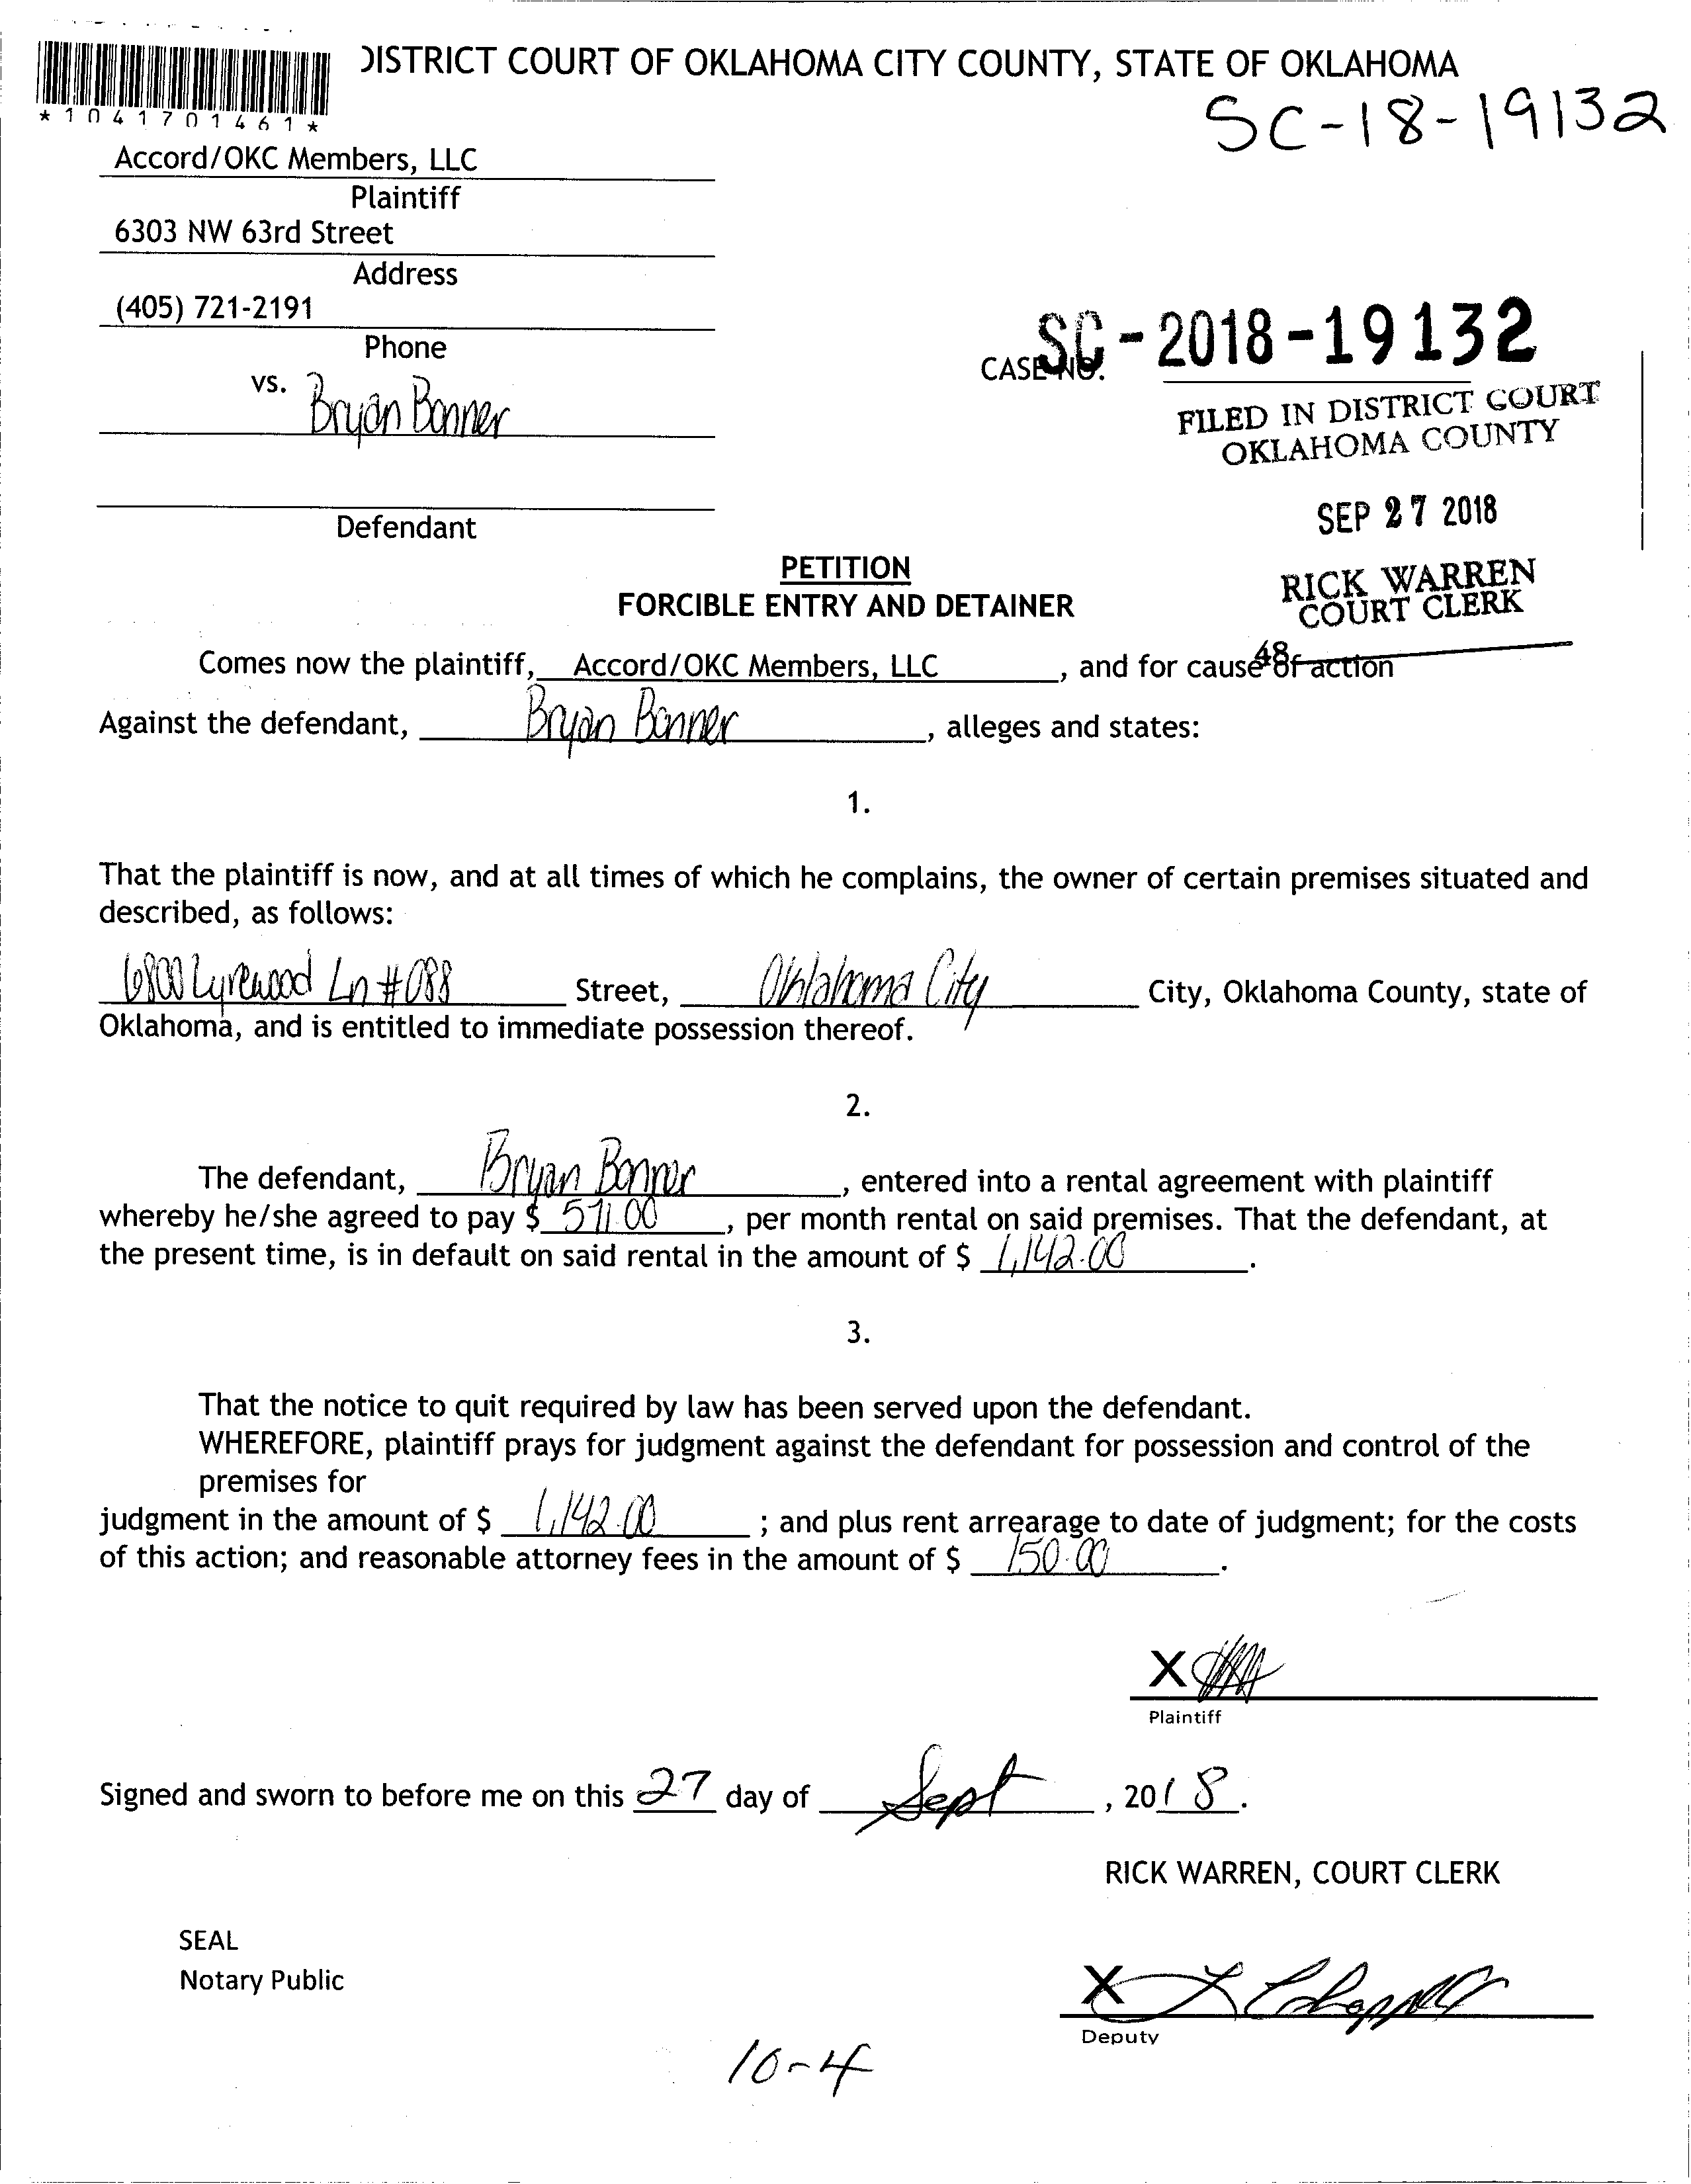 DISTRICT COURT OF OKLAHOMA CITY COUNTY, STATE OF OKLAHOMA
*1041701461*
SC-18-19132
Accord/OKC Members, LLC
Plaintiff
6303 NW 63rd Street
Address
(405) 721-2191
Phone
CASE NO. SC-2018-19132
vs. Bryan Bonner
FILED IN DISTRICT COURT
OKLAHOMA COUNTY
SEP 27 2018
Defendant
PETITION
RICK WARREN
COURT CLERK
FORCIBLE ENTRY AND DETAINER
48
Comes now the plaintiff, Accord/OKC Members, LLC, and for cause of action
Against the defendant, Bryan Bonner, alleges and states:
1.
That the plaintiff is now, and at all times of which he complains, the owner of certain premises situated and
described, as follows:
6800 Lyrewood Ln #088 Street, Oklahoma City City, Oklahoma County, state of
Oklahoma, and is entitled to immediate possession thereof.
2.
The defendant, Bryan Bonner, entered into a rental agreement with plaintiff
whereby he/she agreed to pay $ 571.00, per month rental on said premises. That the defendant, at
the present time, is in default on said rental in the amount of $ 1,142.00.
3.
That the notice to quit required by law has been served upon the defendant.
WHEREFORE, plaintiff prays for judgment against the defendant for possession and control of the
premises for
judgment in the amount of $ 1,142.00; and plus rent arrearage to date of judgment; for the costs
of this action; and reasonable attorney fees in the amount of $ 150.00.
X
Plaintiff
Signed and sworn to before me on this 27 day of Sept, 2018.
RICK WARREN, COURT CLERK
SEAL
Notary Public
X
Deputy
10-4